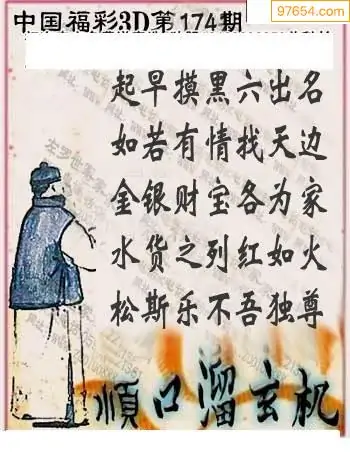 97654.com
中国福彩3D第174期
起早摸黑六出名
如若有情找天边
金银财宝各为家
水货之列红如火
松斯乐不吾独尊
順口溜玄机